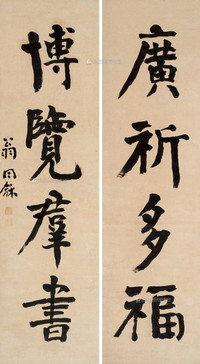 廣祈多福
博覽羣書
翁同龢